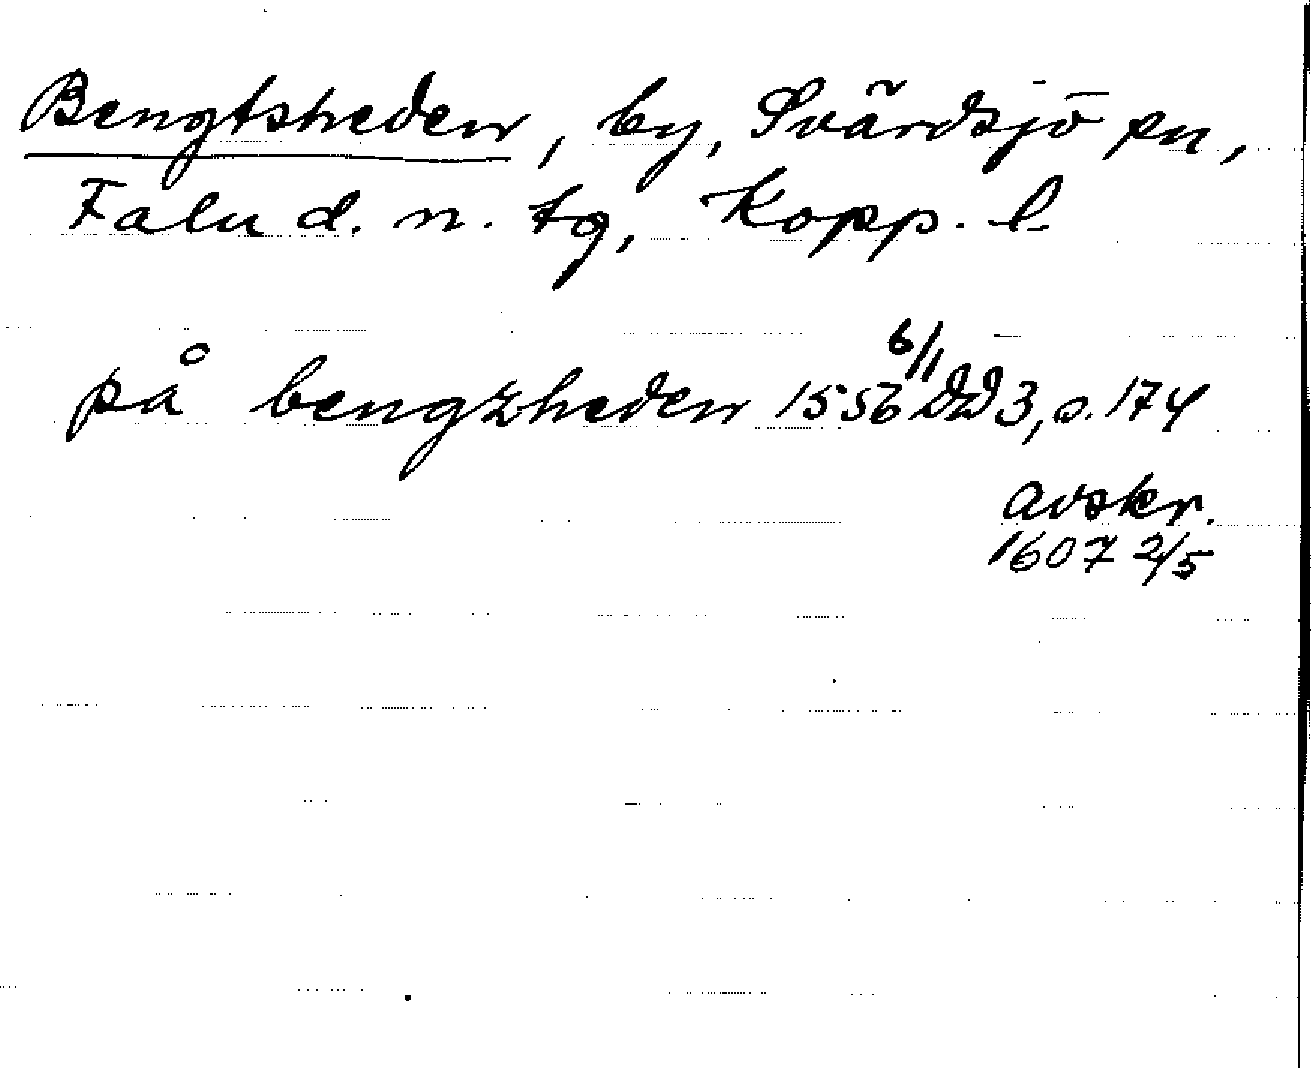 Bengtsheden, by, Svärdsjö sn,
Falu d. n. tg, Kopp. l.
på bengzheden 1556 6/1 DD 3, s. 174
avskr.
1607 2/5